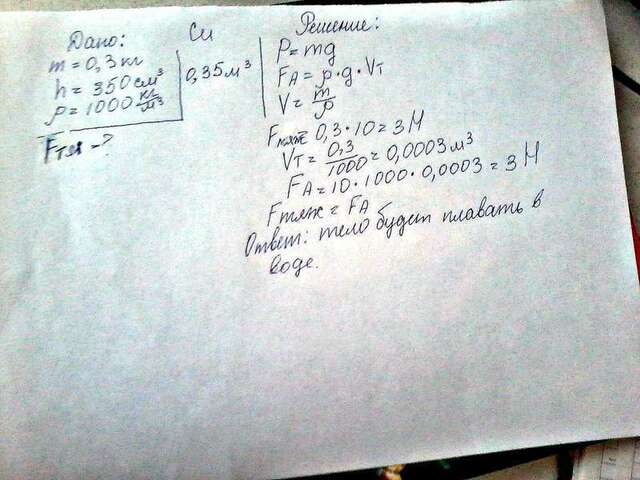 Дано:
m = 0,3 кг
h = 350 см³
ρ = 1000 кг/м³
Fтяж - ?
Си
0,35 м³
Решение:
P = mg
FA = ρ · g · Vт
V = m/ρ
Fтяж = 0,3 · 10 = 3 Н
Vт = 0,3/1000 = 0,0003 м³
FA = 10 · 1000 · 0,0003 = 3 Н
Fтяж = FA
Ответ: тело будет плавать в
воде.